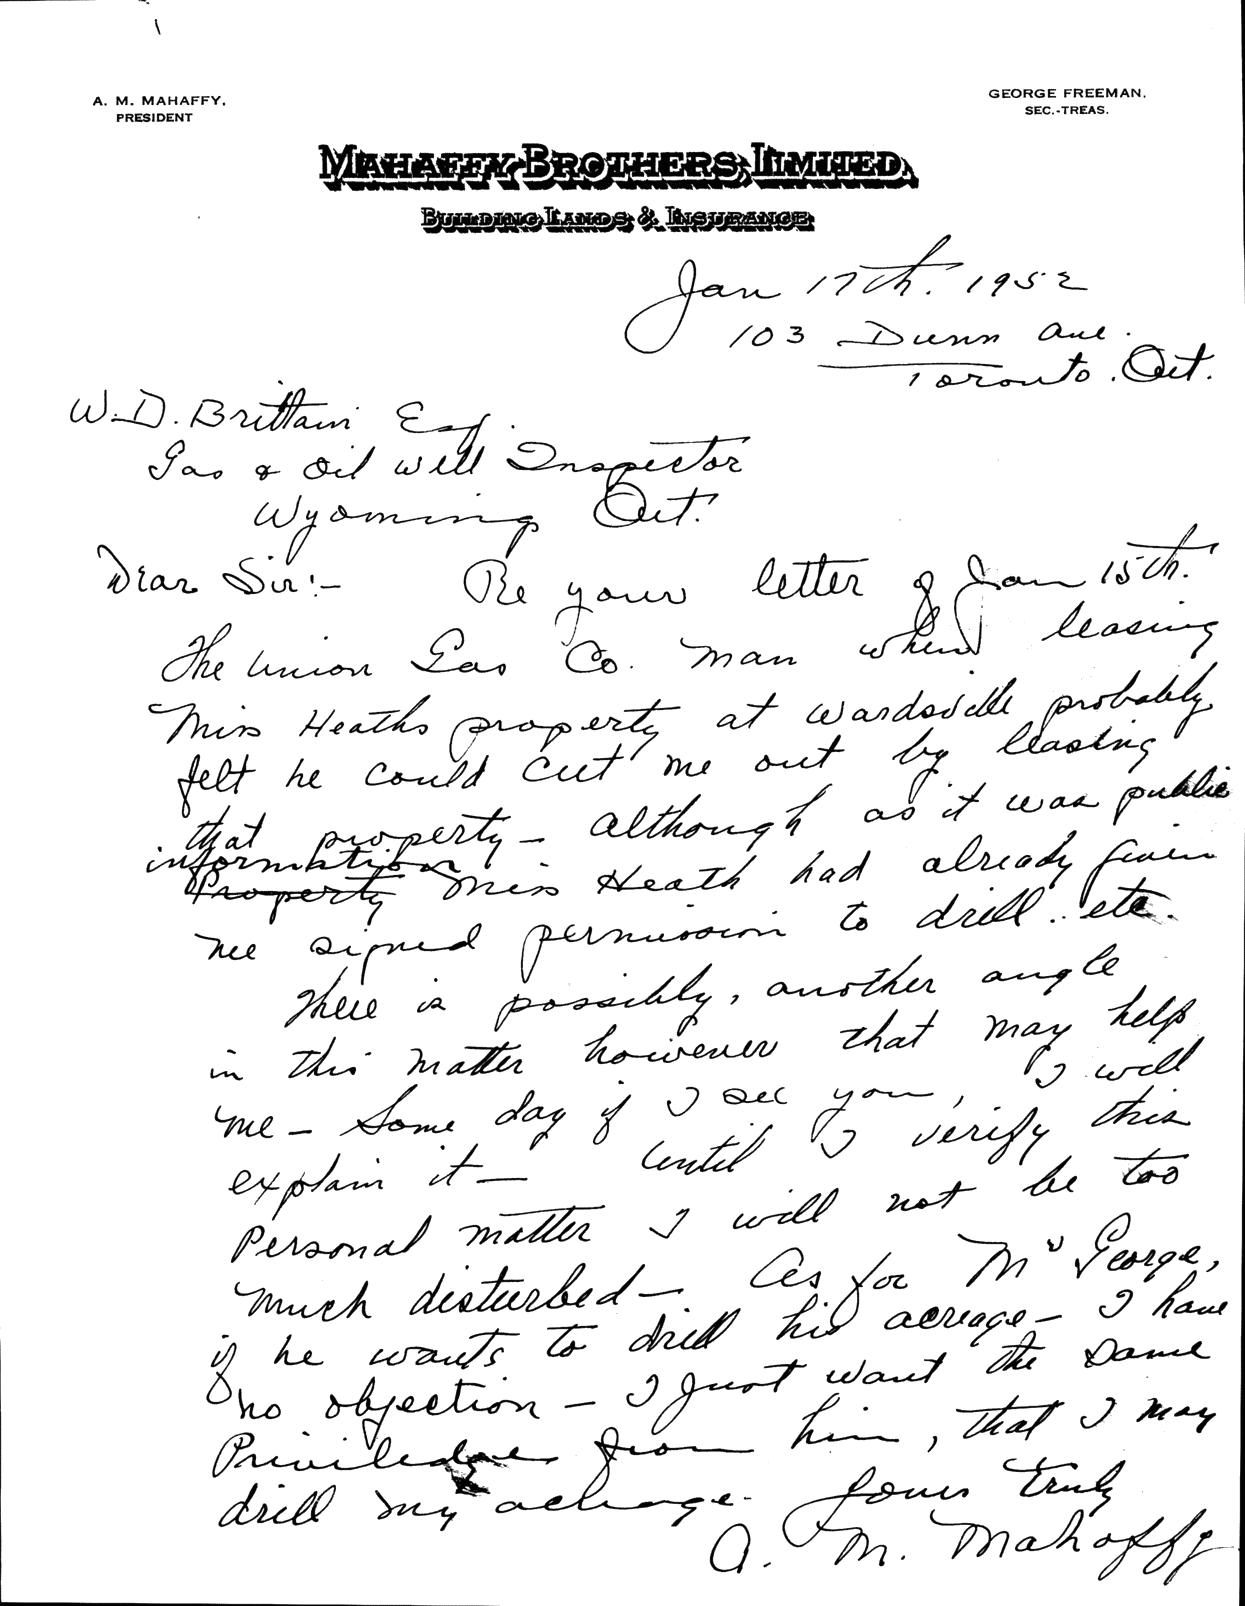 A. M. MAHAFFY,
PRESIDENT
GEORGE FREEMAN,
SEC.-TREAS.
MAHAFFY BROTHERS, LIMITED.
BUILDING LANDS & INSURANCE
Jan 17th. 1952
103 Dunn Ave.
Toronto. Ont.
W. D. Brittain Esq.
Gas & Oil Well Inspector
Wyoming Ont.
Dear Sir:- Re your letter of Jan 15th.
The Union Gas Co. man when leasing
Miss Heaths property at Wardsville probably
felt he could cut me out by leasing
that property - although as it was public
information
Property Miss Heath had already given
me signed permission to drill.. etc.
There is possibly, another angle
in this matter however that may help
me - Some day if I see you, I will
explain it - Until I verify this
Personal matter I will not be too
much disturbed - As for Mr George,
if he wants to drill his acreage - I have
no objection - I just want the same
Priviledge from him, that I may
drill my acreage. Yours truly
A. M. Mahaffy